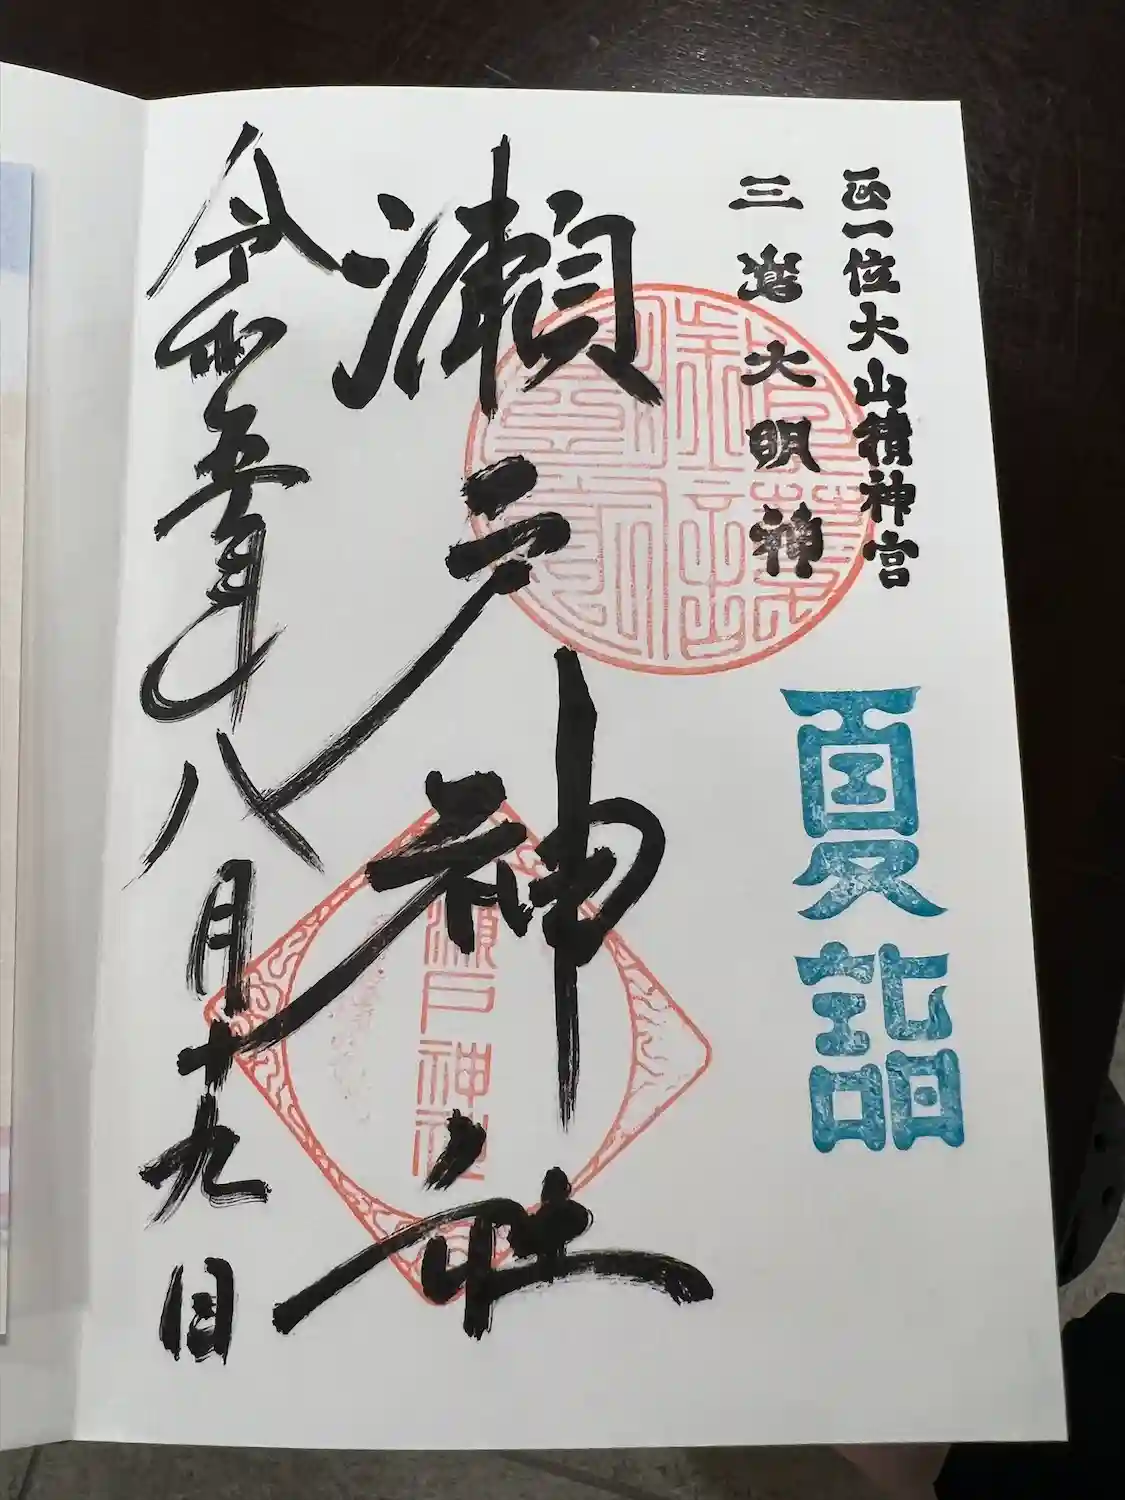 正一位大山積神宮
三島大明神
夏詣
瀬戸神社
瀬戸神社
令和五年八月十九日